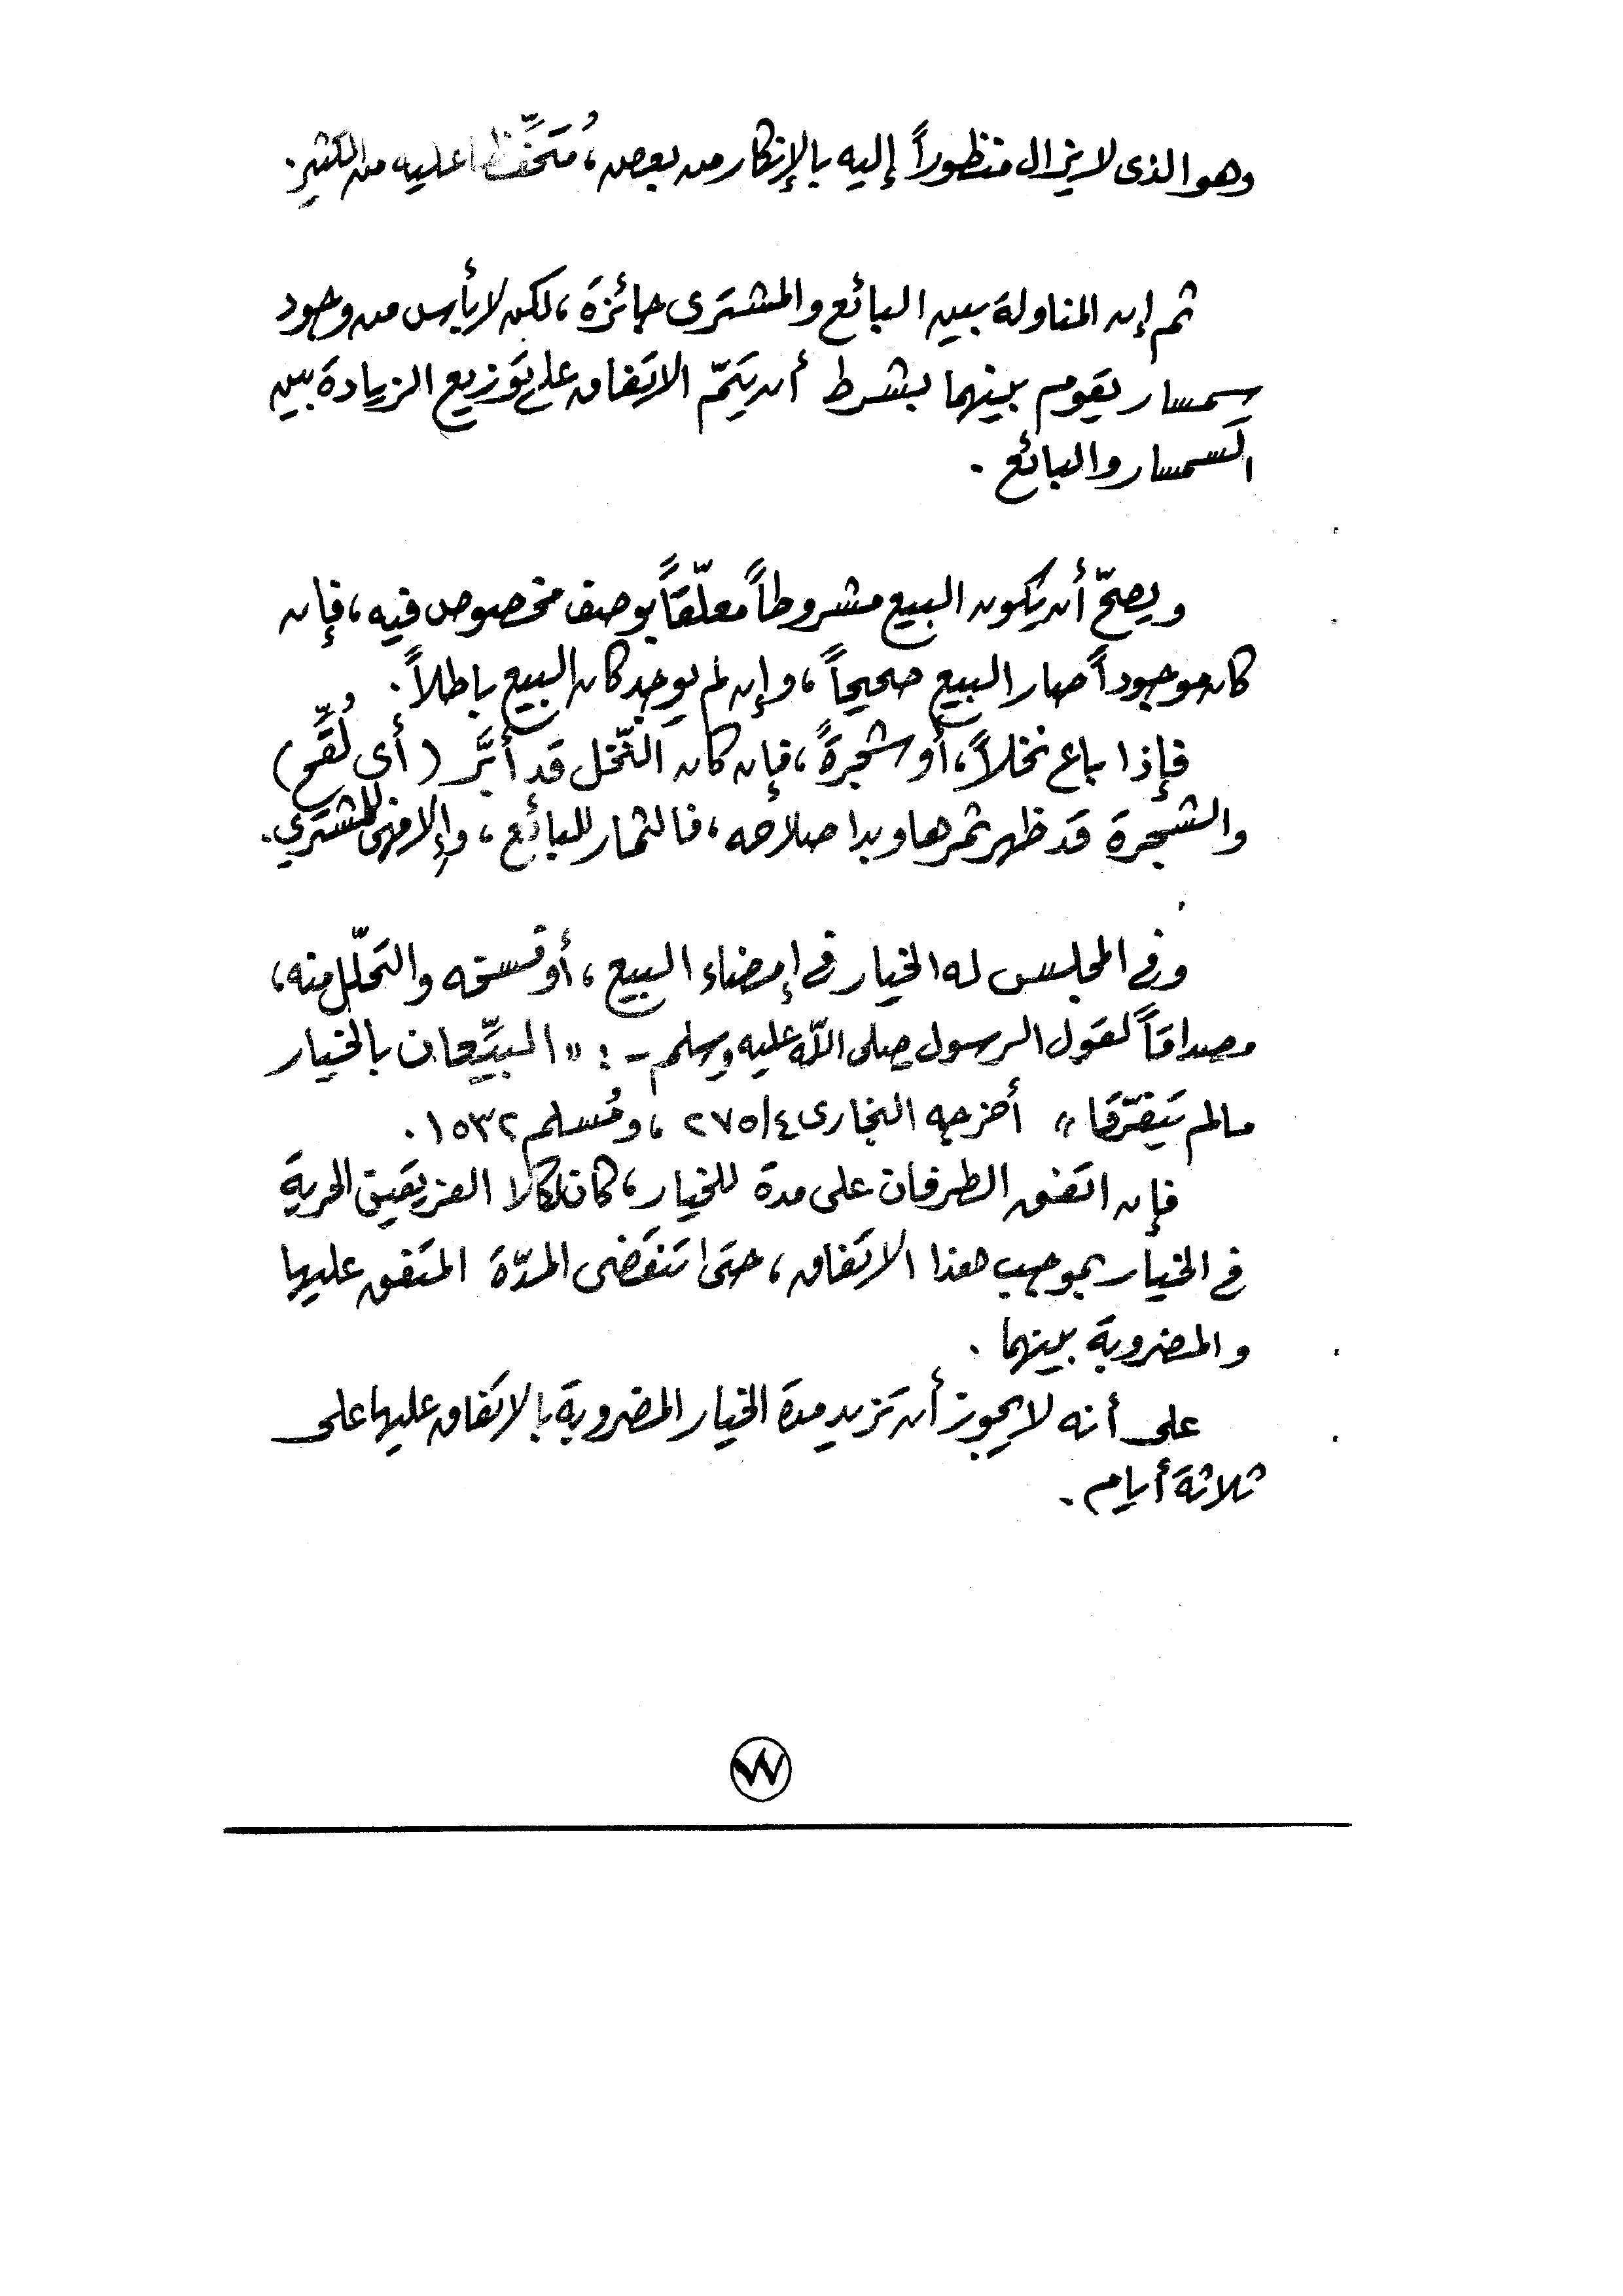 وهو الذى لا يزال منظوراً إليه بالإنكار من بعض، مُتَحَفَّظا عليه من الكثير.
ثم إن المناولة بين البائع والمشترى جائزة، لكن لا بأس من وجود
سمسار يقوم بينهما بشرط أن يتمّ الاتفاق على توزيع الزيادة بين
السمسار والبائع.
ويصحّ أن يكون البيع مشروطاً معلّقاً بوصف مخصوص فيه، فإن
كان موجوداً صار البيع صحيحاً، وإن لم يوجد كان البيع باطلاً.
فإذا باع نخلاً، أو شجرةً، فإن كان النّخل قد أبَّر (أى لُقِّح)
والشجرة قد ظهر ثمرها وبدا صلاحه، فالثمار للبائع، وإلا فهى للمشترى.
وفى المجلس له الخيار فى إمضاء البيع، أو فسخه والتحلّل منه،
مصداقاً لقول الرسول صلى اللّه عليه وسلم -: «البيِّعان بالخيار
مالم يتفرّقا» أخرجه البخارى ٢٧٥/٤، ومُسلم ١٥٣٢.
فإن اتفق الطرفان على مدة للخيار، كان لكلا الفريقين الحرية
فى الخيار بموجب هذا الاتفاق، حتى تنقضى المدّة المتفق عليها
والمضروبة بينهما.
على أنه لا يجوز أن تزيد مدة الخيار المضروبة بالاتفاق عليها على
ثلاثة أيام.